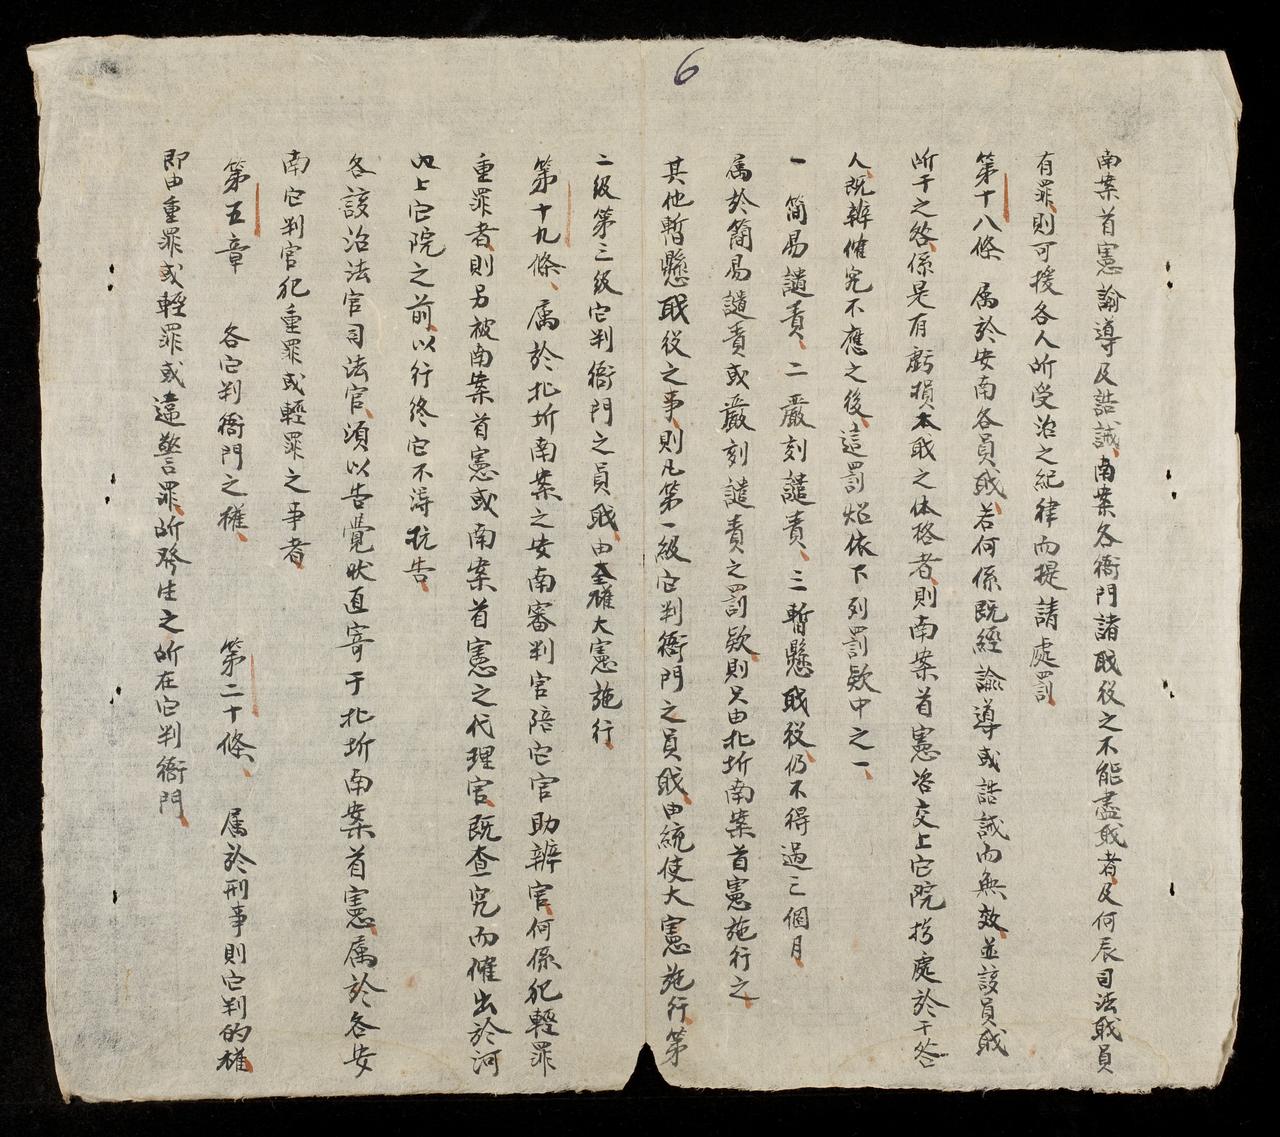 6
南案首憲諭導及誥誡、南案各衙門諸戝役之不能盡戝者、及何辰司法戝員
有罪、則可援各人所受治之紀律而提請處罰、
第十八條　属於安南各員戝、若何係既經諭導或誥誡而無效、並該員戝
所干之咎、係是有虧損本戝之体格者、則南案首憲咨交上它院拐處於干咎
人、既辦催究不應之後、這罰炤依下列罰欵中之一、
一　簡易譴責、二嚴刻譴責、三暫懸戝役、仍不得過三個月、
属於簡易譴責或嚴刻譴責之罰欵、則只由北圻南案首憲施行之、
其他暫懸戝役之事、則凡第一級它判衙門之員戝、由統使大憲施行、第
二級第三級它判衙門之員戝、由全權大憲施行、
第十九條、属於北圻南案之安南審判官陪它官助辦官、何係犯輕罪
重罪者、則另被南案首憲或南案首憲之代理官、既查究而催出於河
内上它院之前、以行終它不得抗告、
各該治法官司法官、須以告覺狀直寄于北圻南案首憲、属於各安
南它判官犯重罪或輕罪之事者、
第五章　各它判衙門之權、　第二十條、　属於刑事則它判的權、
即由重罪或輕罪或違警罪、所發生之所在它判衙門、